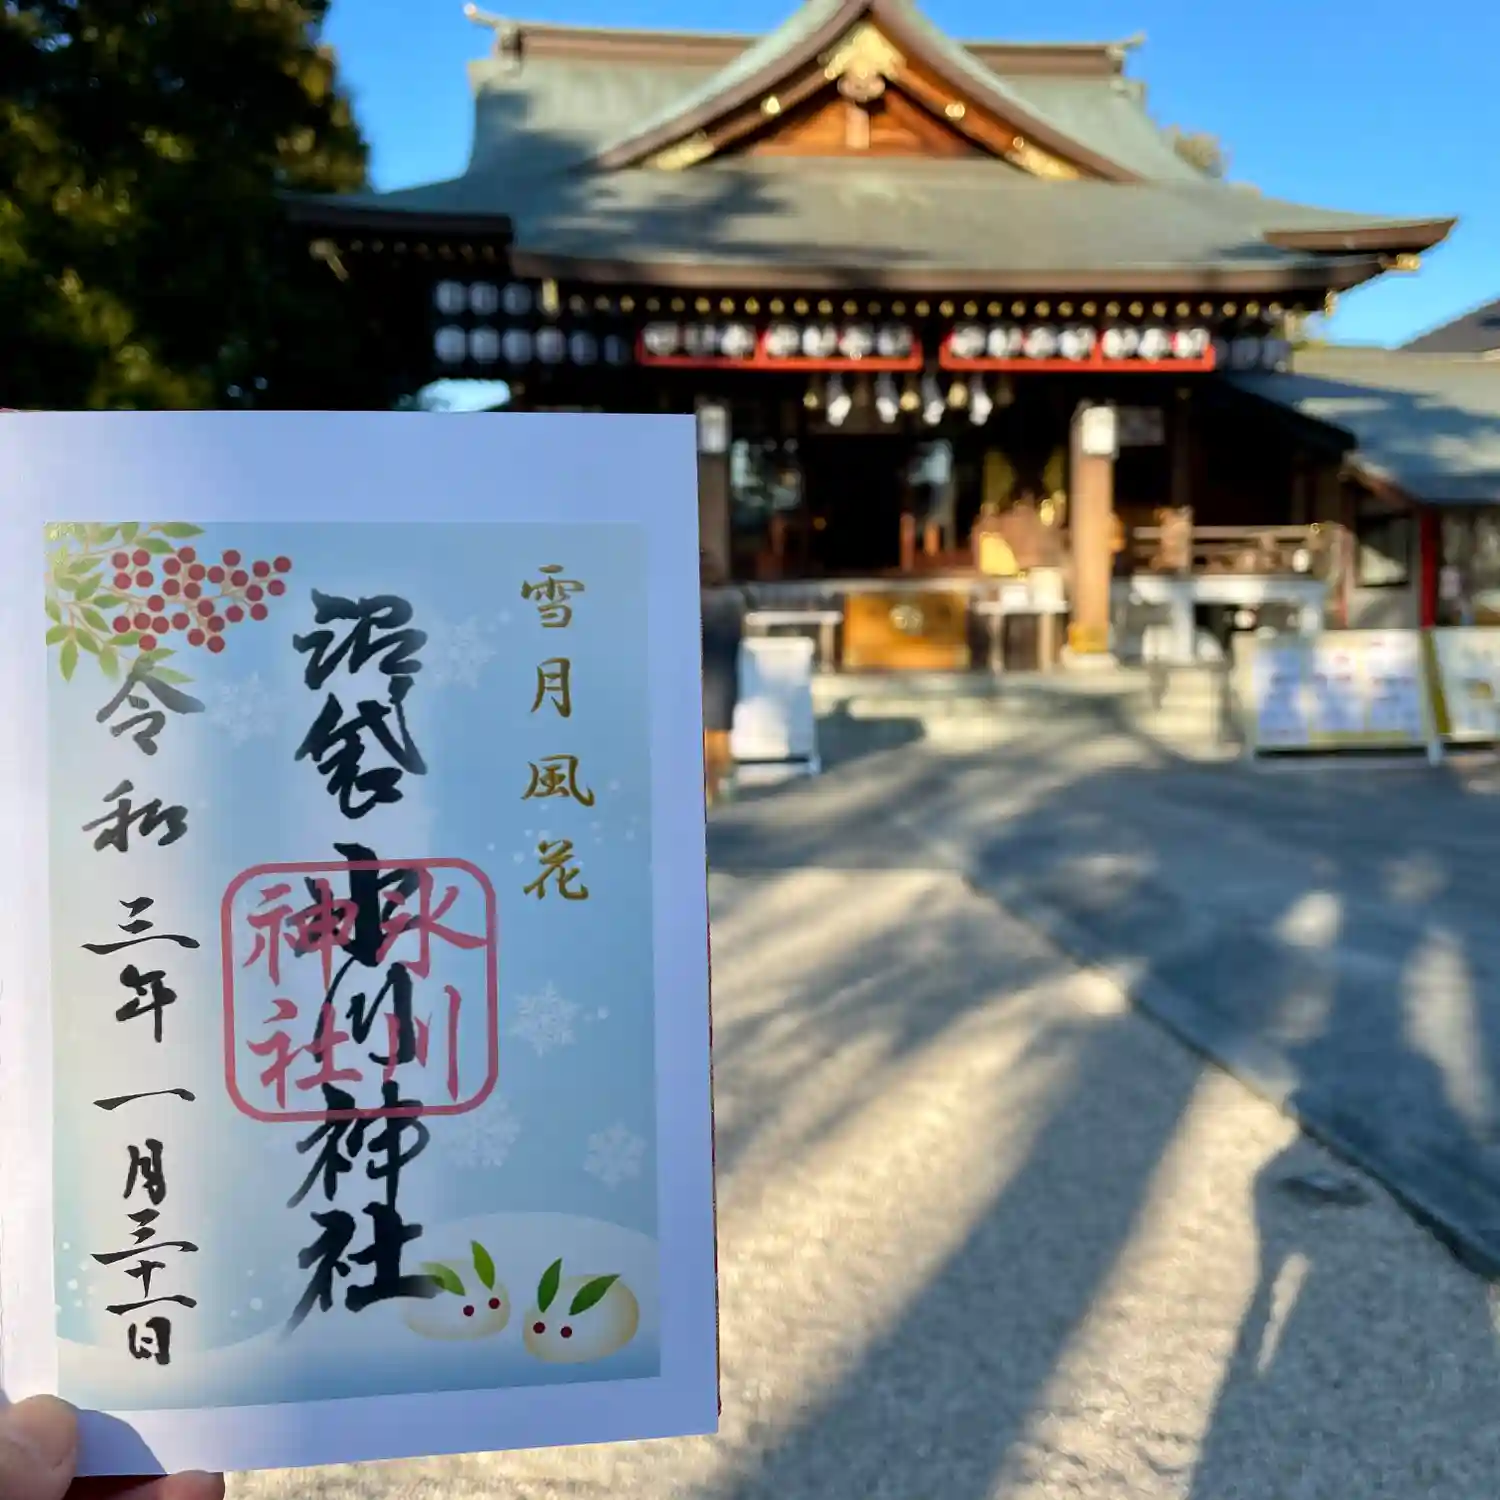 雪月風花
沼袋氷川神社
氷川
神社
令和三年一月三十一日